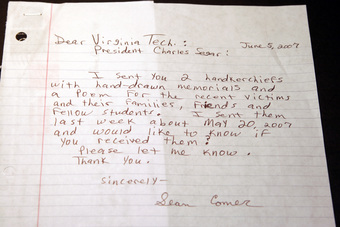 Dear Virginia Tech.: June 5, 2007
President Charles Seger: and
I sent you 2 handkerchiefs
with hand-drawn memorials and
a Poem for the recent victims
and their families, Friends and
Fellow students. I sent them
last week about May 20, 2007
and would like to know if
you received them?
Please let me know.
Thank you.
Sincerely-
Sean Comer